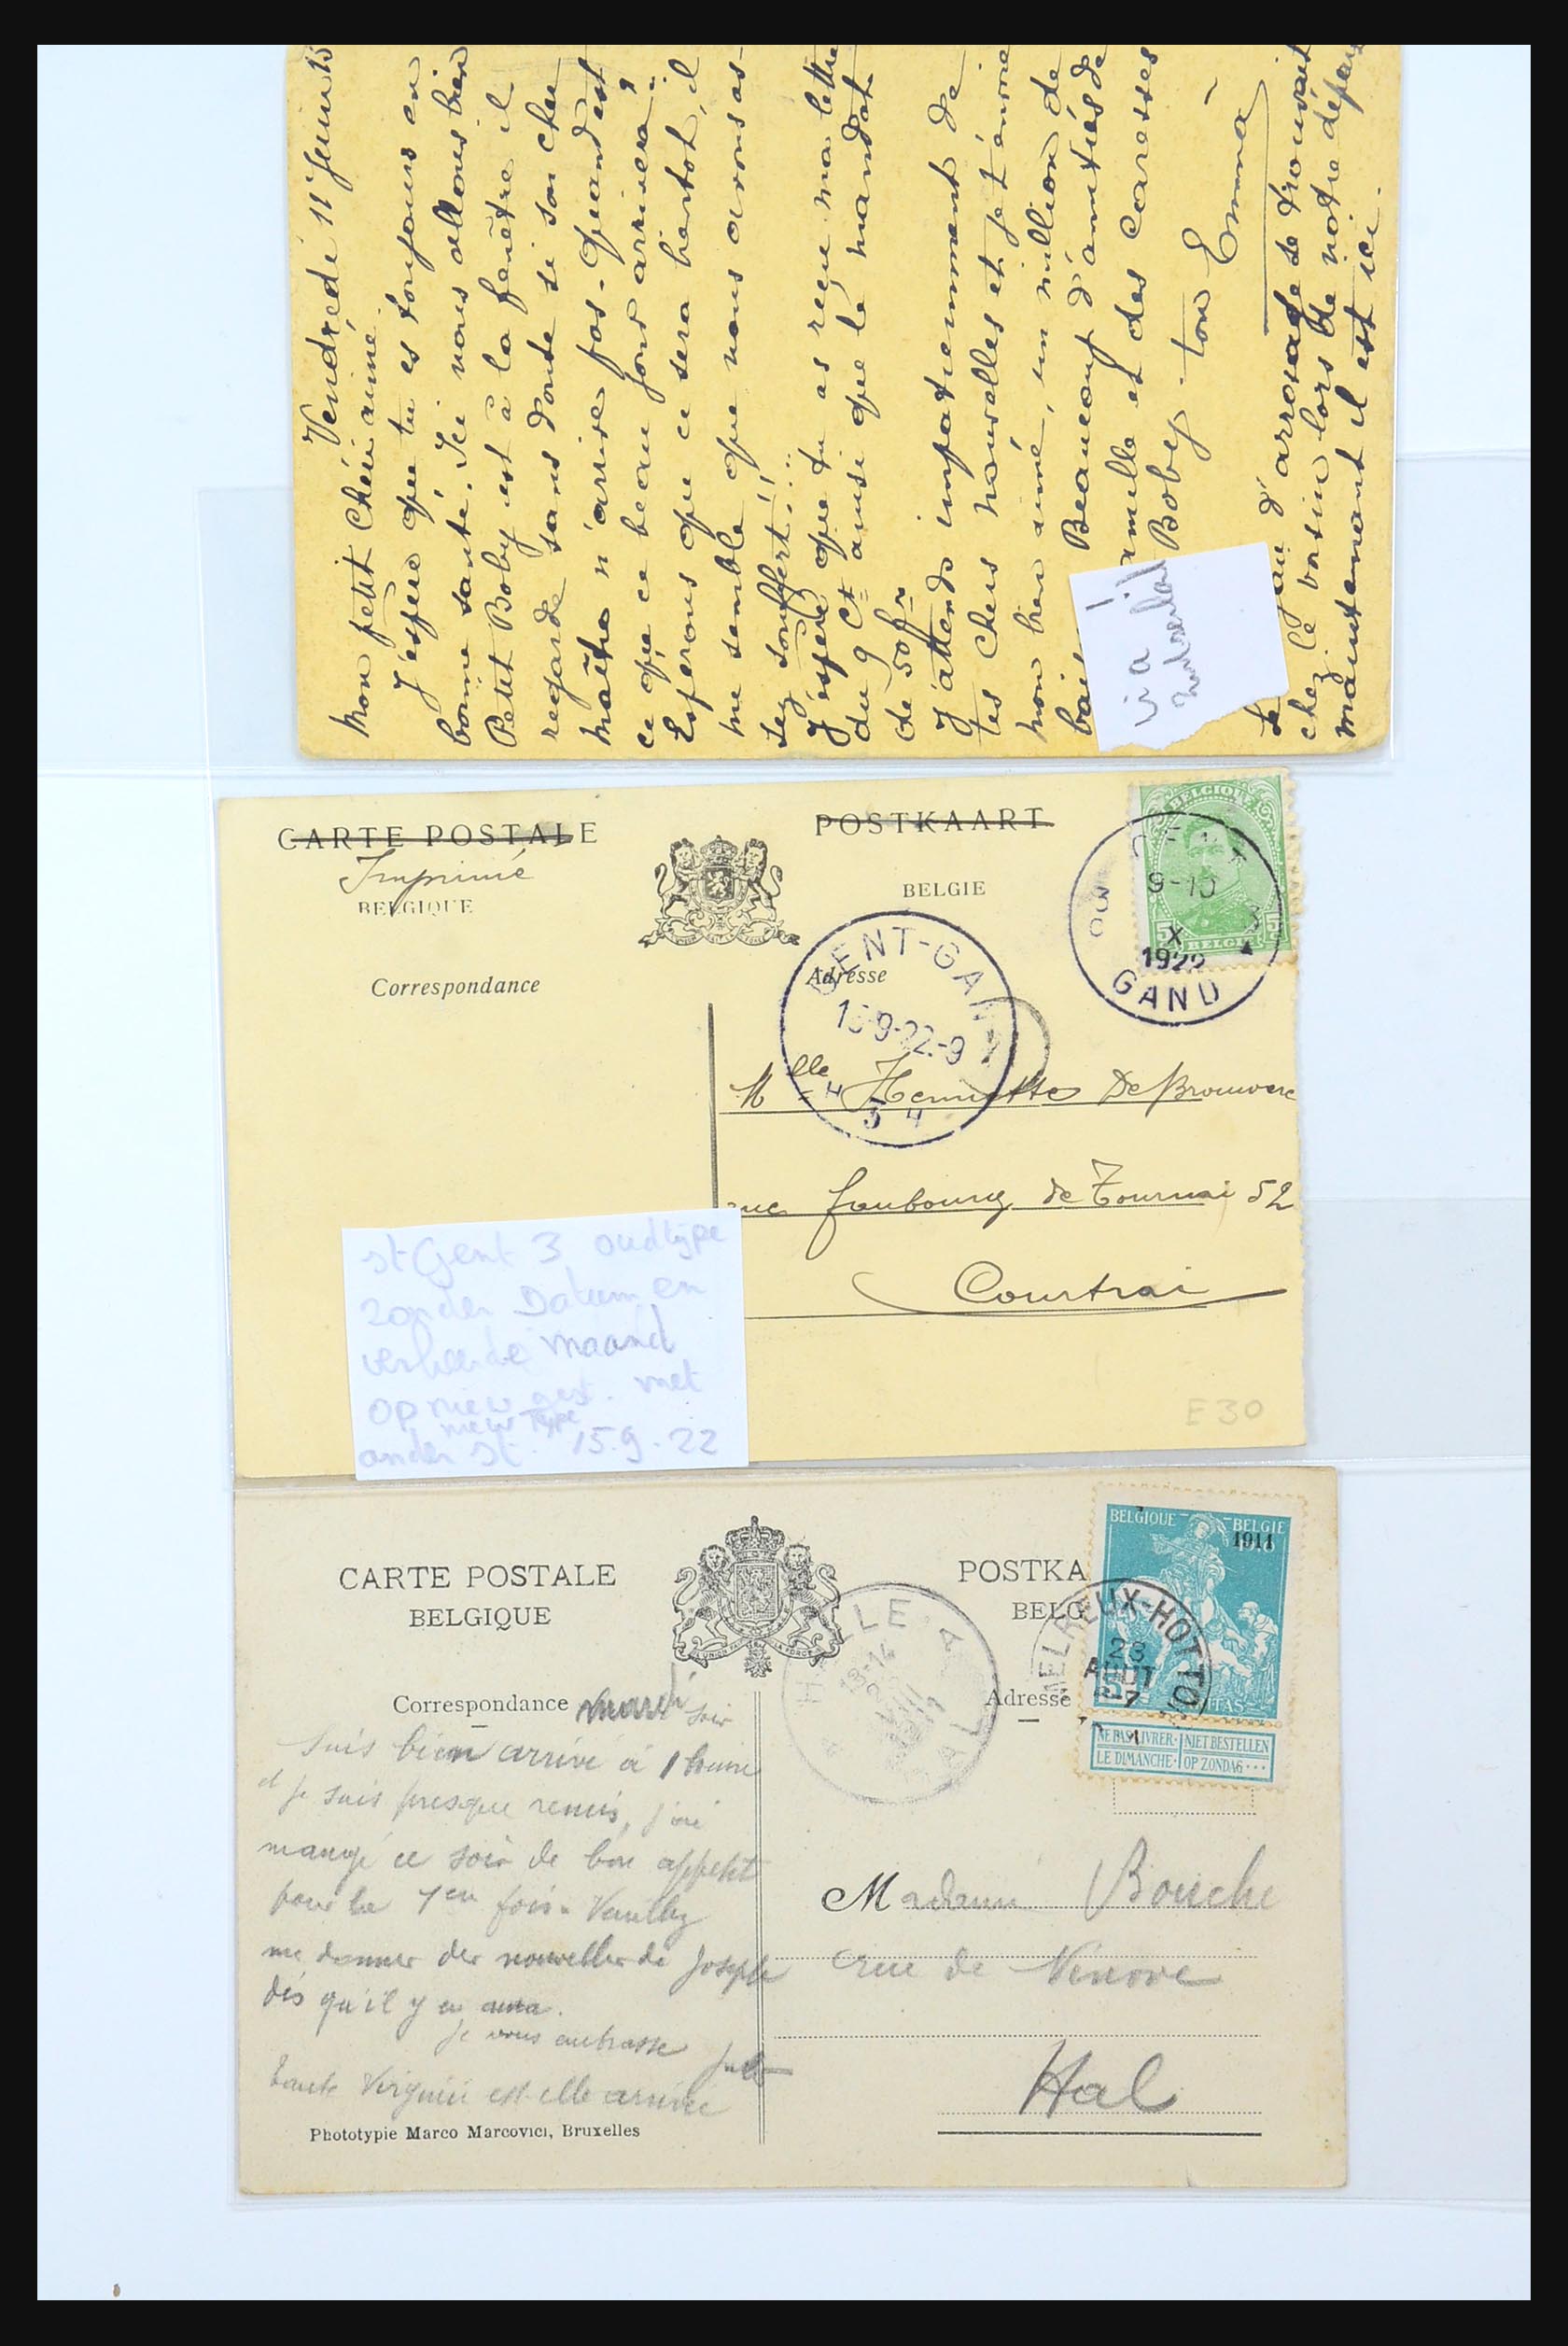 Vendredi 11 Juin 15
Mon petit Chéri aimé.
J'espère que tu es toujours en
bonne santé. Ici nous allons bien
Petit Boby est à la fenêtre il
regarde sans doute si son cher
maître n'arrive pas - Quand est
ce que ce beau jour arrivera?
Espérons que ce sera bientôt, il
me semble que nous avons as-
sez souffert!!...
J'espère que tu as reçu ma lettre
du 9 Ct ainsi que le mandat
de 50 fr
J'attends impatiemment de
tes chers nouvelles et je t'envoie
mon bien aimé, un million de
bai
Beaucoup d'amitiés de
amille et des caresses
Boby - ton Emma
d'arrosage se trouvait
chez le voisin lors de notre départ
maintenant il est ici.
via
CARTE POSTALE
POSTKAART
Imprimé
BELGIQUE
BELGIE
Correspondance
Adresse
BELGIQUE
5 5
BELGIE
9-10
3
X
1922
GAND
GENT-GAND
15-9-22.-9
Mlle Henriette De Brouwere
rue faubourg de Tournai 52
Courtrai
st Gent 3 oudtype
zonder Datum en
verkeerde maand
opnieuw gest. met
new Type
ander st. 15.9.22
E30
CARTE POSTALE
POSTKA
BELGIQUE
BELG
BELGIQUE - BELGIE
1911
MELREUX-HOTTO
23
AOUT
8-7
HALLE
HAL
13-14
Correspondance
Adresse
NE PAS LIVRER NIET BESTELLEN
LE DIMANCHE OP ZONDAG
Mardi soir
Suis bien arrivé à 1 heure
et je suis presque remis, j'ai
mangé ce soir de bon appétit
pour la 1ere fois. Veuillez
me donner des nouvelles de Joseph
dès qu'il y en aura.
Je vous embrasse
Tante Virginie est-elle arrivée
Phototypie Marco Marcovici, Bruxelles
Madame Bouche
rue de Ninove
Hal